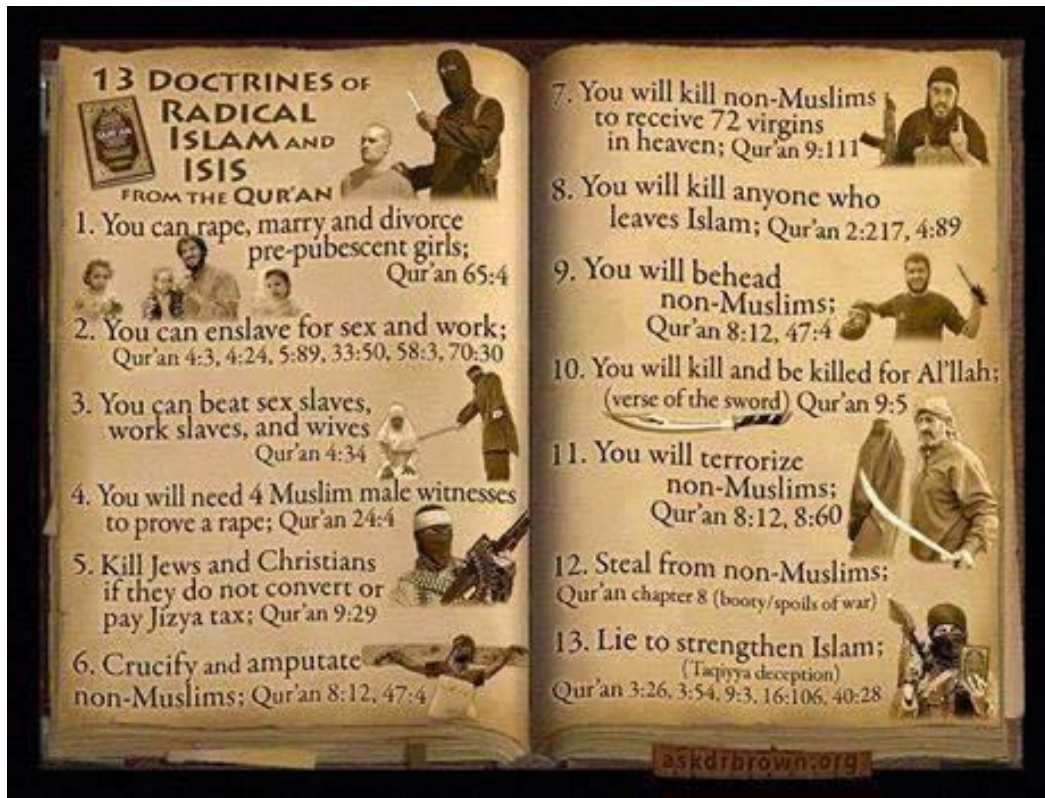 13 DOCTRINES OF
RADICAL
ISLAM AND
ISIS
FROM THE QUR'AN
1. You can rape, marry and divorce
pre-pubescent girls;
Qur'an 65:4
2. You can enslave for sex and work;
Qur'an 4:3, 4:24, 5:89, 33:50, 58:3, 70:30
3. You can beat sex slaves,
work slaves, and wives
Qur'an 4:34
4. You will need 4 Muslim male witnesses
to prove a rape; Qur'an 24:4
5. Kill Jews and Christians
if they do not convert or
pay Jizya tax; Qur'an 9:29
6. Crucify and amputate
non-Muslims; Qur'an 8:12, 47:4
7. You will kill non-Muslims
to receive 72 virgins
in heaven; Qur'an 9:111
8. You will kill anyone who
leaves Islam; Qur'an 2:217, 4:89
9. You will behead
non-Muslims;
Qur'an 8:12, 47:4
10. You will kill and be killed for Al'llah;
(verse of the sword) Qur'an 9:5
11. You will terrorize
non-Muslims;
Qur'an 8:12, 8:60
12. Steal from non-Muslims;
Qur'an chapter 8 (booty/spoils of war)
13. Lie to strengthen Islam;
(Taqiyya deception)
Qur'an 3:26, 3:54, 9:3, 16:106, 40:28
askdrbrown.org